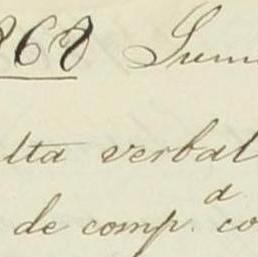 868 Sum
lta verbal
de comp.a co